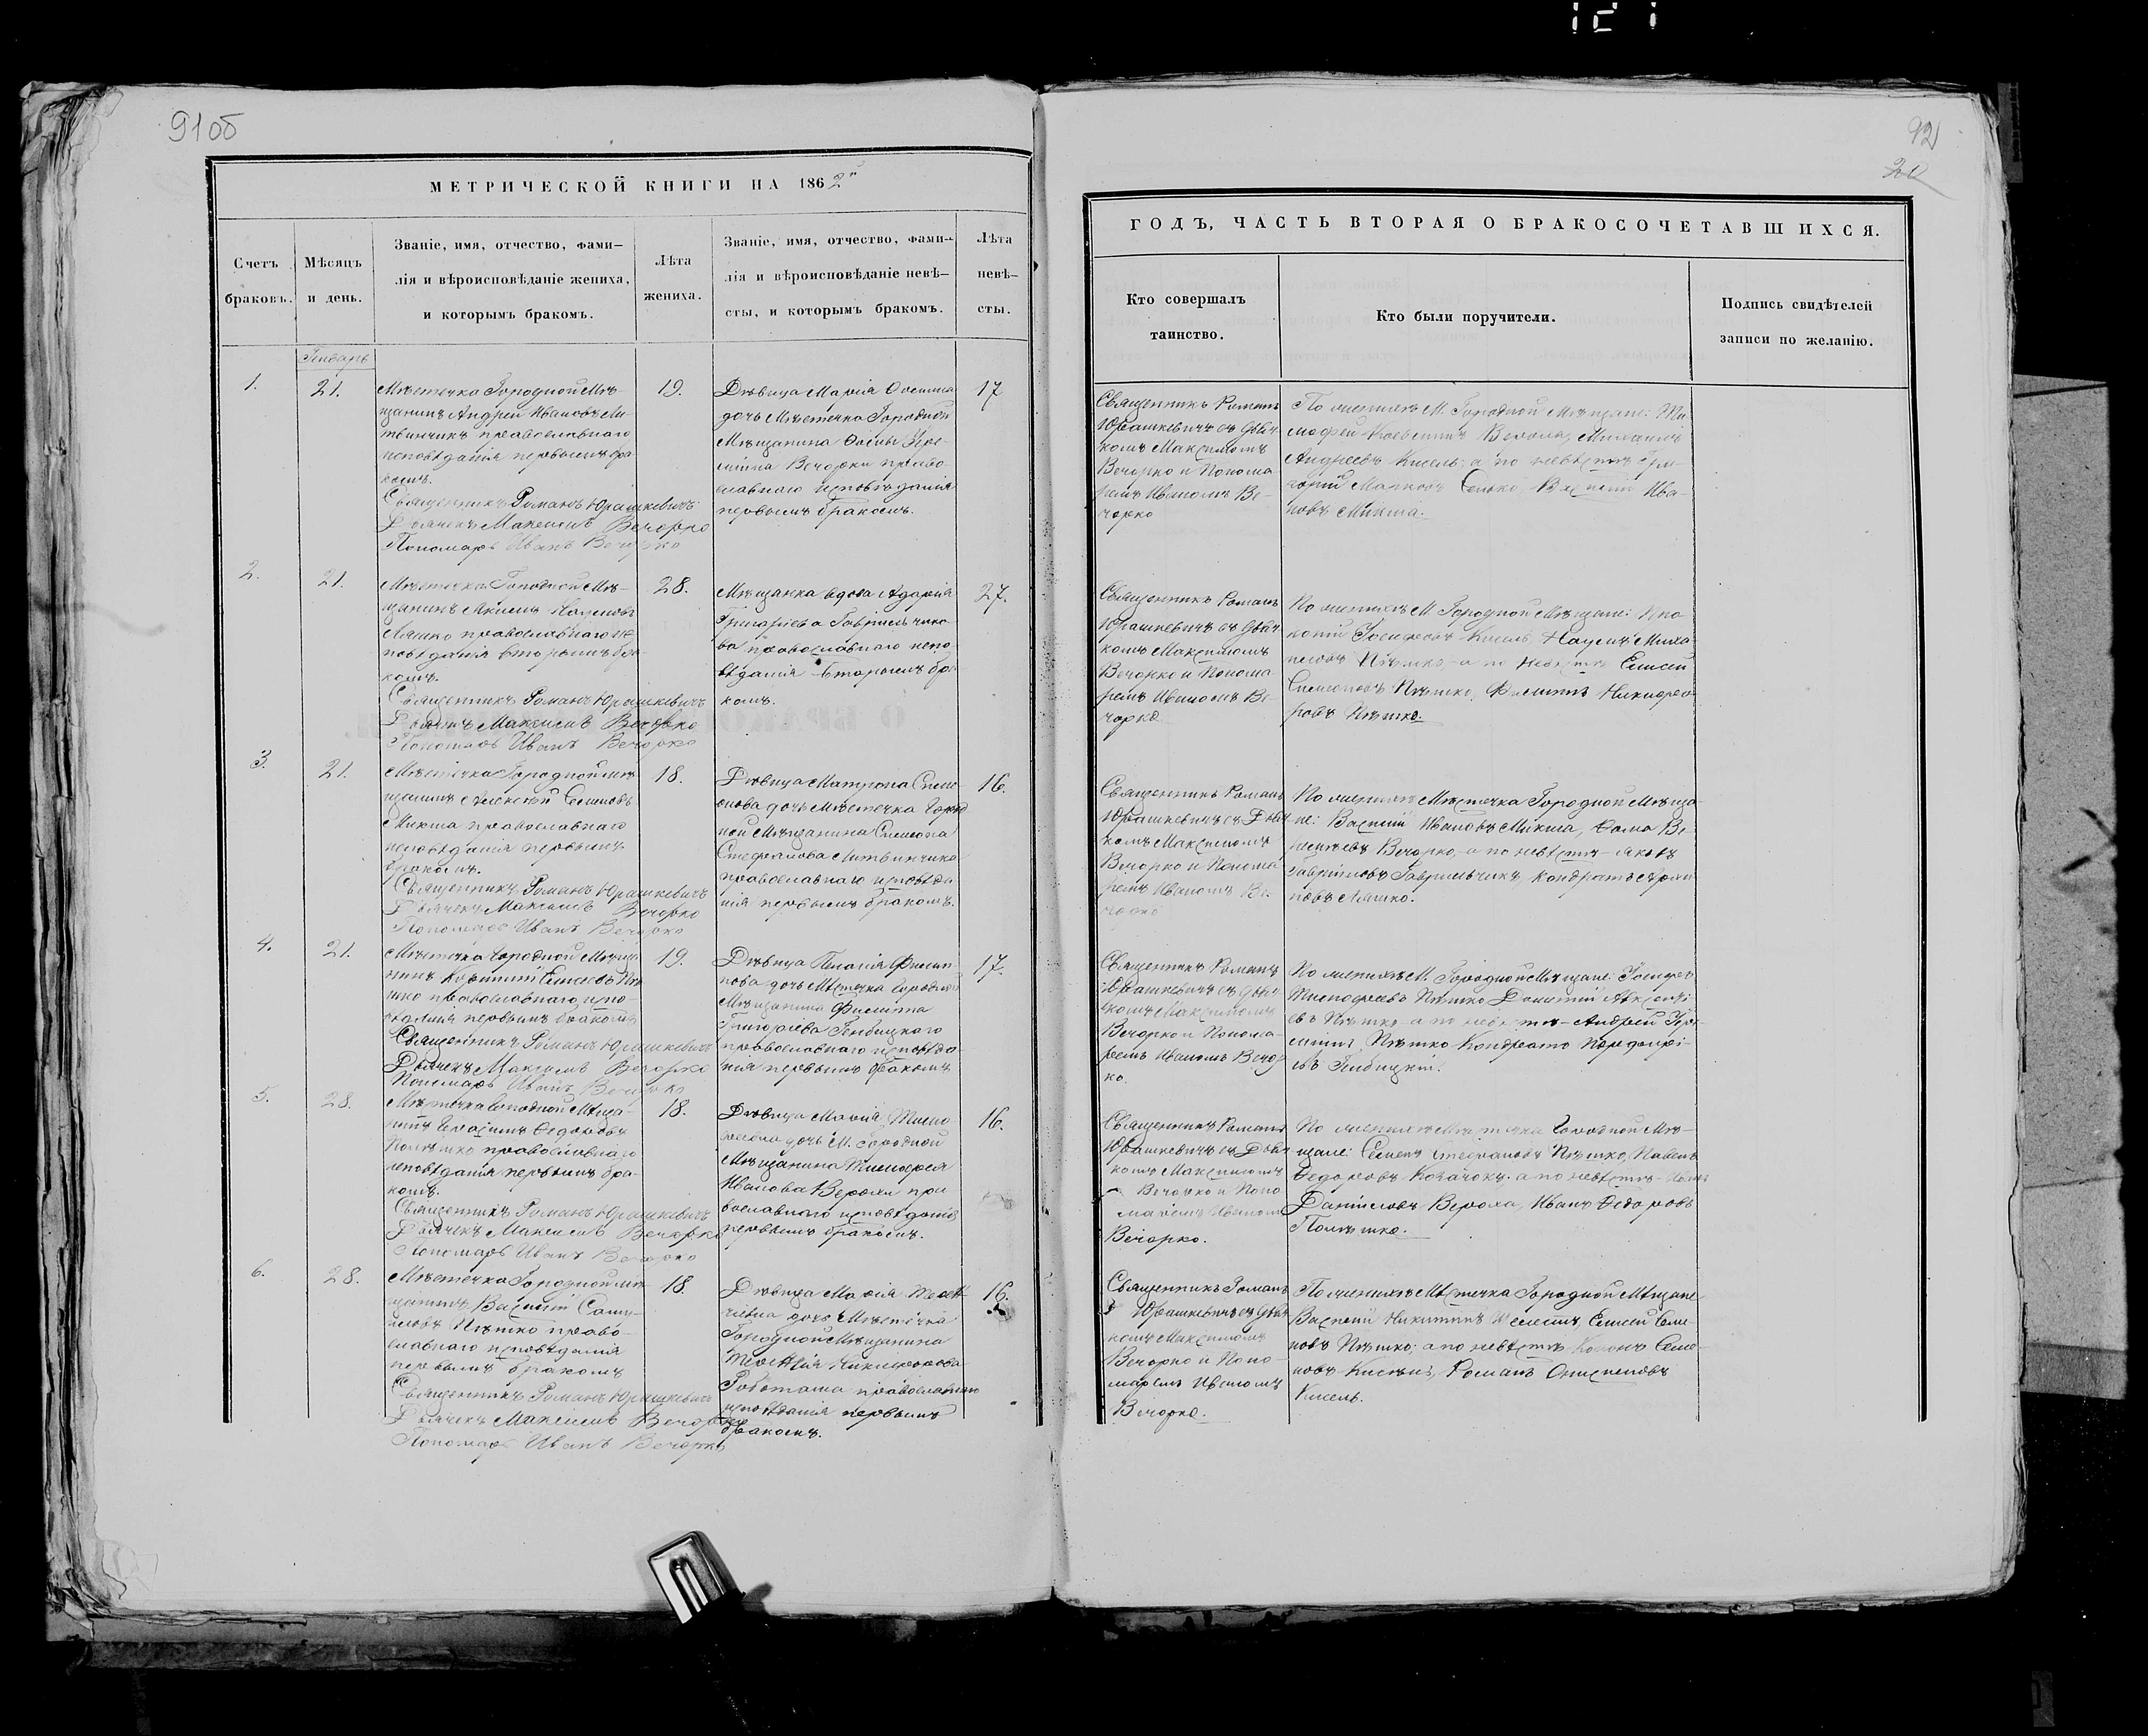 91об
МЕТРИЧЕСКОЙ КНИГИ НА 1862й
Счетъ браковъ.
Мѣсяцъ и день.
Званіе, имя, отчество, фами-
лія и вѣроисповѣданіе жениха,
и которымъ бракомъ.
Лѣта жениха.
Званіе, имя, отчество, фами-
лія и вѣроисповѣданіе невѣ-
сты, и которымъ бракомъ.
Лѣта невѣ-
сты.
Январь
1.
21.
Мѣстечка Городной Мѣ-
щанинъ Андрей Ивановъ Ли-
твинчикъ православнаго
исповѣданія первымъ бра-
комъ.
Священникъ Романъ Юрашкевичъ
Дьячекъ Максимъ Вечорко
Пономарь Иванъ Вечорко
19.
Дѣвица Марія Осипова
дочь Мѣстечка Городной
Мѣщанина Осипа
Вечорки право-
славнаго исповѣданія
первымъ бракомъ.
17
2.
21.
Мѣстечка Городной Мѣ-
щанинъ
Ляшко православнаго ис-
повѣданія вторымъ бра-
комъ.
Священникъ Романъ Юрашкевичъ
Дьячекъ Максимъ Вечорко
Пономарь Иванъ Вечорко
28.
Мѣщанка вдова Агафія
Григоріева Гаврильчико-
ва православнаго испо-
вѣданія вторымъ бра-
комъ.
27.
3.
21.
Мѣстечка Городной мѣ-
щанинъ Алексѣй Семеновъ
Микша православнаго
исповѣданія первымъ
бракомъ.
Священникъ Романъ Юрашкевичъ
Дьячекъ Максимъ Вечорко
Пономарь Иванъ Вечорко
18.
Дѣвица Матрона Симе-
онова дочь Мѣстечка Город-
ной Мѣщанина Симеона
Стефанова Литвинчика
православнаго исповѣда-
нія первымъ бракомъ.
16.
4.
21.
Мѣстечка Городной Мѣща-
нинъ Елисеевъ Пѣ-
шко православнаго испо-
вѣданія первымъ бракомъ
Священникъ Романъ Юрашкевичъ
Дьячекъ Максимъ Вечорко
Пономарь Иванъ Вечорко
19.
Дѣвица Пелагія Филип-
пова дочь Мѣстечка Городной
Мѣщанина Филиппа
Григоріева
православнаго исповѣда-
нія первымъ бракомъ
17.
5.
28.
Мѣстечка Городной Мѣща-
нинъ Герасимъ Ѳедоровъ
Полѣшко православнаго
исповѣданія первымъ бра-
комъ.
Священникъ Романъ Юрашкевичъ
Дьячекъ Максимъ Вечорко
Пономарь Иванъ Вечорко
18.
Дѣвица Марія Тимо-
феева дочь М. Городной
Мѣщанина Тимофея
Иванова Верохи пра-
вославнаго исповѣданія
первымъ бракомъ.
16.
6.
28.
Мѣстечка Городной мѣ-
щанинъ Василій Саму-
иловъ Пѣшко право-
славнаго исповѣданія
первымъ бракомъ
Священникъ Романъ Юрашкевичъ
Дьячекъ Максимъ Вечорко
Пономарь Иванъ Вечорко
18.
Дѣвица Марія
дочь Мѣстечка
Городной Мѣщанина
Никифорова
православнаго
исповѣданія первымъ
бракомъ.
16.
92
20
ГОДЪ, ЧАСТЬ ВТОРАЯ О БРАКОСОЧЕТАВШИХСЯ.
Кто совершалъ таинство.
Кто были поручители.
Подпись свидѣтелей
записи по желанію.
Священникъ Романъ
Юрашкевичъ съ Дьяч-
комъ Максимомъ
Вечорко и Понома-
ремъ Иваномъ Ве-
чорко
По женихѣ М. Городной Мѣщане: Ти-
мофей Вероха, Михаилъ
Андреевъ Кисель; а по невѣстѣ Гри-
горій Марковъ Василій Ива-
новъ Микша.
Священникъ Романъ
Юрашкевичъ съ Дьяч-
комъ Максимомъ
Вечорко и Понома-
ремъ Иваномъ Ве-
чорко
По женихѣ М. Городной Мѣщане: Про-
копій Іосифовъ Кисель, Наумъ Миха-
иловъ Пѣшко, а по невѣстѣ Елисей
Симеоновъ Пѣшко, Филиппъ Никифо-
ровъ Пѣшко.
Священникъ Романъ
Юрашкевичъ съ Дьяч-
комъ Максимомъ
Вечорко и Понома-
ремъ Иваномъ Ве-
чорко
По женихѣ Мѣстечка Городной Мѣща-
не: Василій Ивановъ Микша, Ѳома
Вечорко, а по невѣстѣ - Яковъ
Гавриловъ Гаврильчикъ, Кондратъ
Ляшко.
Священникъ Романъ
Юрашкевичъ съ Дьяч-
комъ Максимомъ
Вечорко и Понома-
ремъ Иваномъ Вечор-
ко.
По женихѣ М. Городной Мѣщане: Іосифъ
Тимофеевъ Пѣшко,
Пѣшко а по невѣстѣ - Андрей
Пѣшко
Священникъ Романъ
Юрашкевичъ съ Дьяч-
комъ Максимомъ
Вечорко и Поно-
маремъ Иваномъ
Вечорко.
По женихѣ Мѣстечка Городной Мѣ-
щане: Семенъ Степановъ Пѣшко, Павелъ
Ѳедоровъ Козачокъ а по невѣстѣ -
Даніиловъ Вероха, Иванъ Ѳедоровъ
Полѣшко.
Священникъ Романъ
Юрашкевичъ съ Дьяч-
комъ Максимомъ
Вечорко и Поно-
маремъ Иваномъ
Вечорко.
По женихѣ Мѣстечка Городной Мѣщане
Василій Никитинъ Елисей Семе-
новъ Пѣшко; а по невѣстѣ Кононъ Семе-
новъ Романъ
Кисель.